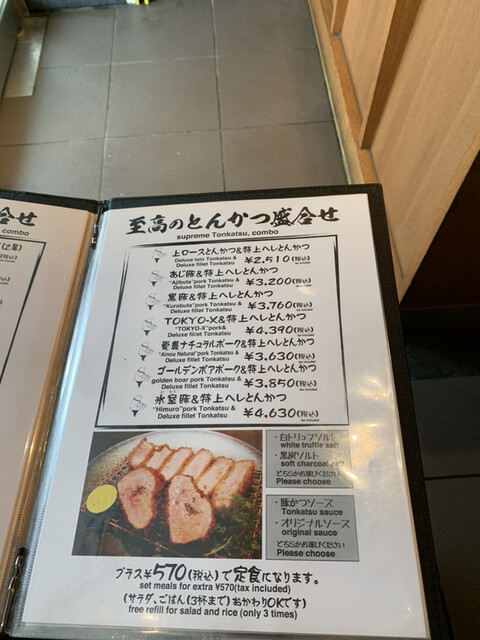 合せ
combo
至高のとんかつ盛合せ
supreme Tonkatsu, combo
上ロースとんかつ&特上ヘレとんかつ
Deluxe loin Tonkatsu &
Deluxe fillet Tonkatsu
¥2,510(税込)
あじ豚&特上ヘレとんかつ
"Ajibuta"pork Tonkatsu &
Deluxe fillet Tonkatsu
¥3,200(税込)
黒豚&特上ヘレとんかつ
"Kurobuta"pork Tonkatsu &
Deluxe fillet Tonkatsu
¥3,760(税込)
TOKYO-X&特上ヘレとんかつ
"TOKYO-X"pork&
Deluxe fillet Tonkatsu
¥4,390(税込)
愛農ナチュラルポーク&特上ヘレとんかつ
"Ainou Natural"pork Tonkatsu &
Deluxe fillet Tonkatsu
¥3,630(税込)
ゴールデンボアポーク&特上ヘレとんかつ
golden boar pork Tonkatsu &
Deluxe fillet Tonkatsu
¥3,850(税込)
氷室豚&特上ヘレとんかつ
"Himuro"pork Tonkatsu &
Deluxe fillet Tonkatsu
¥4,630(税込)
・白トリュフソルト
white truffle salt
・黒炭ソルト
soft charcoal salt
どちらかお選びください
Please choose
・豚かつソース
Tonkatsu sauce
・オリジナルソース
original sauce
どちらかお選びください
Please choose
プラス¥570(税込)で定食になります。
set meals for extra ¥570(tax included)
(サラダ、ごはん(3杯まで)おかわりOKです)
free refill for salad and rice (only 3 times)